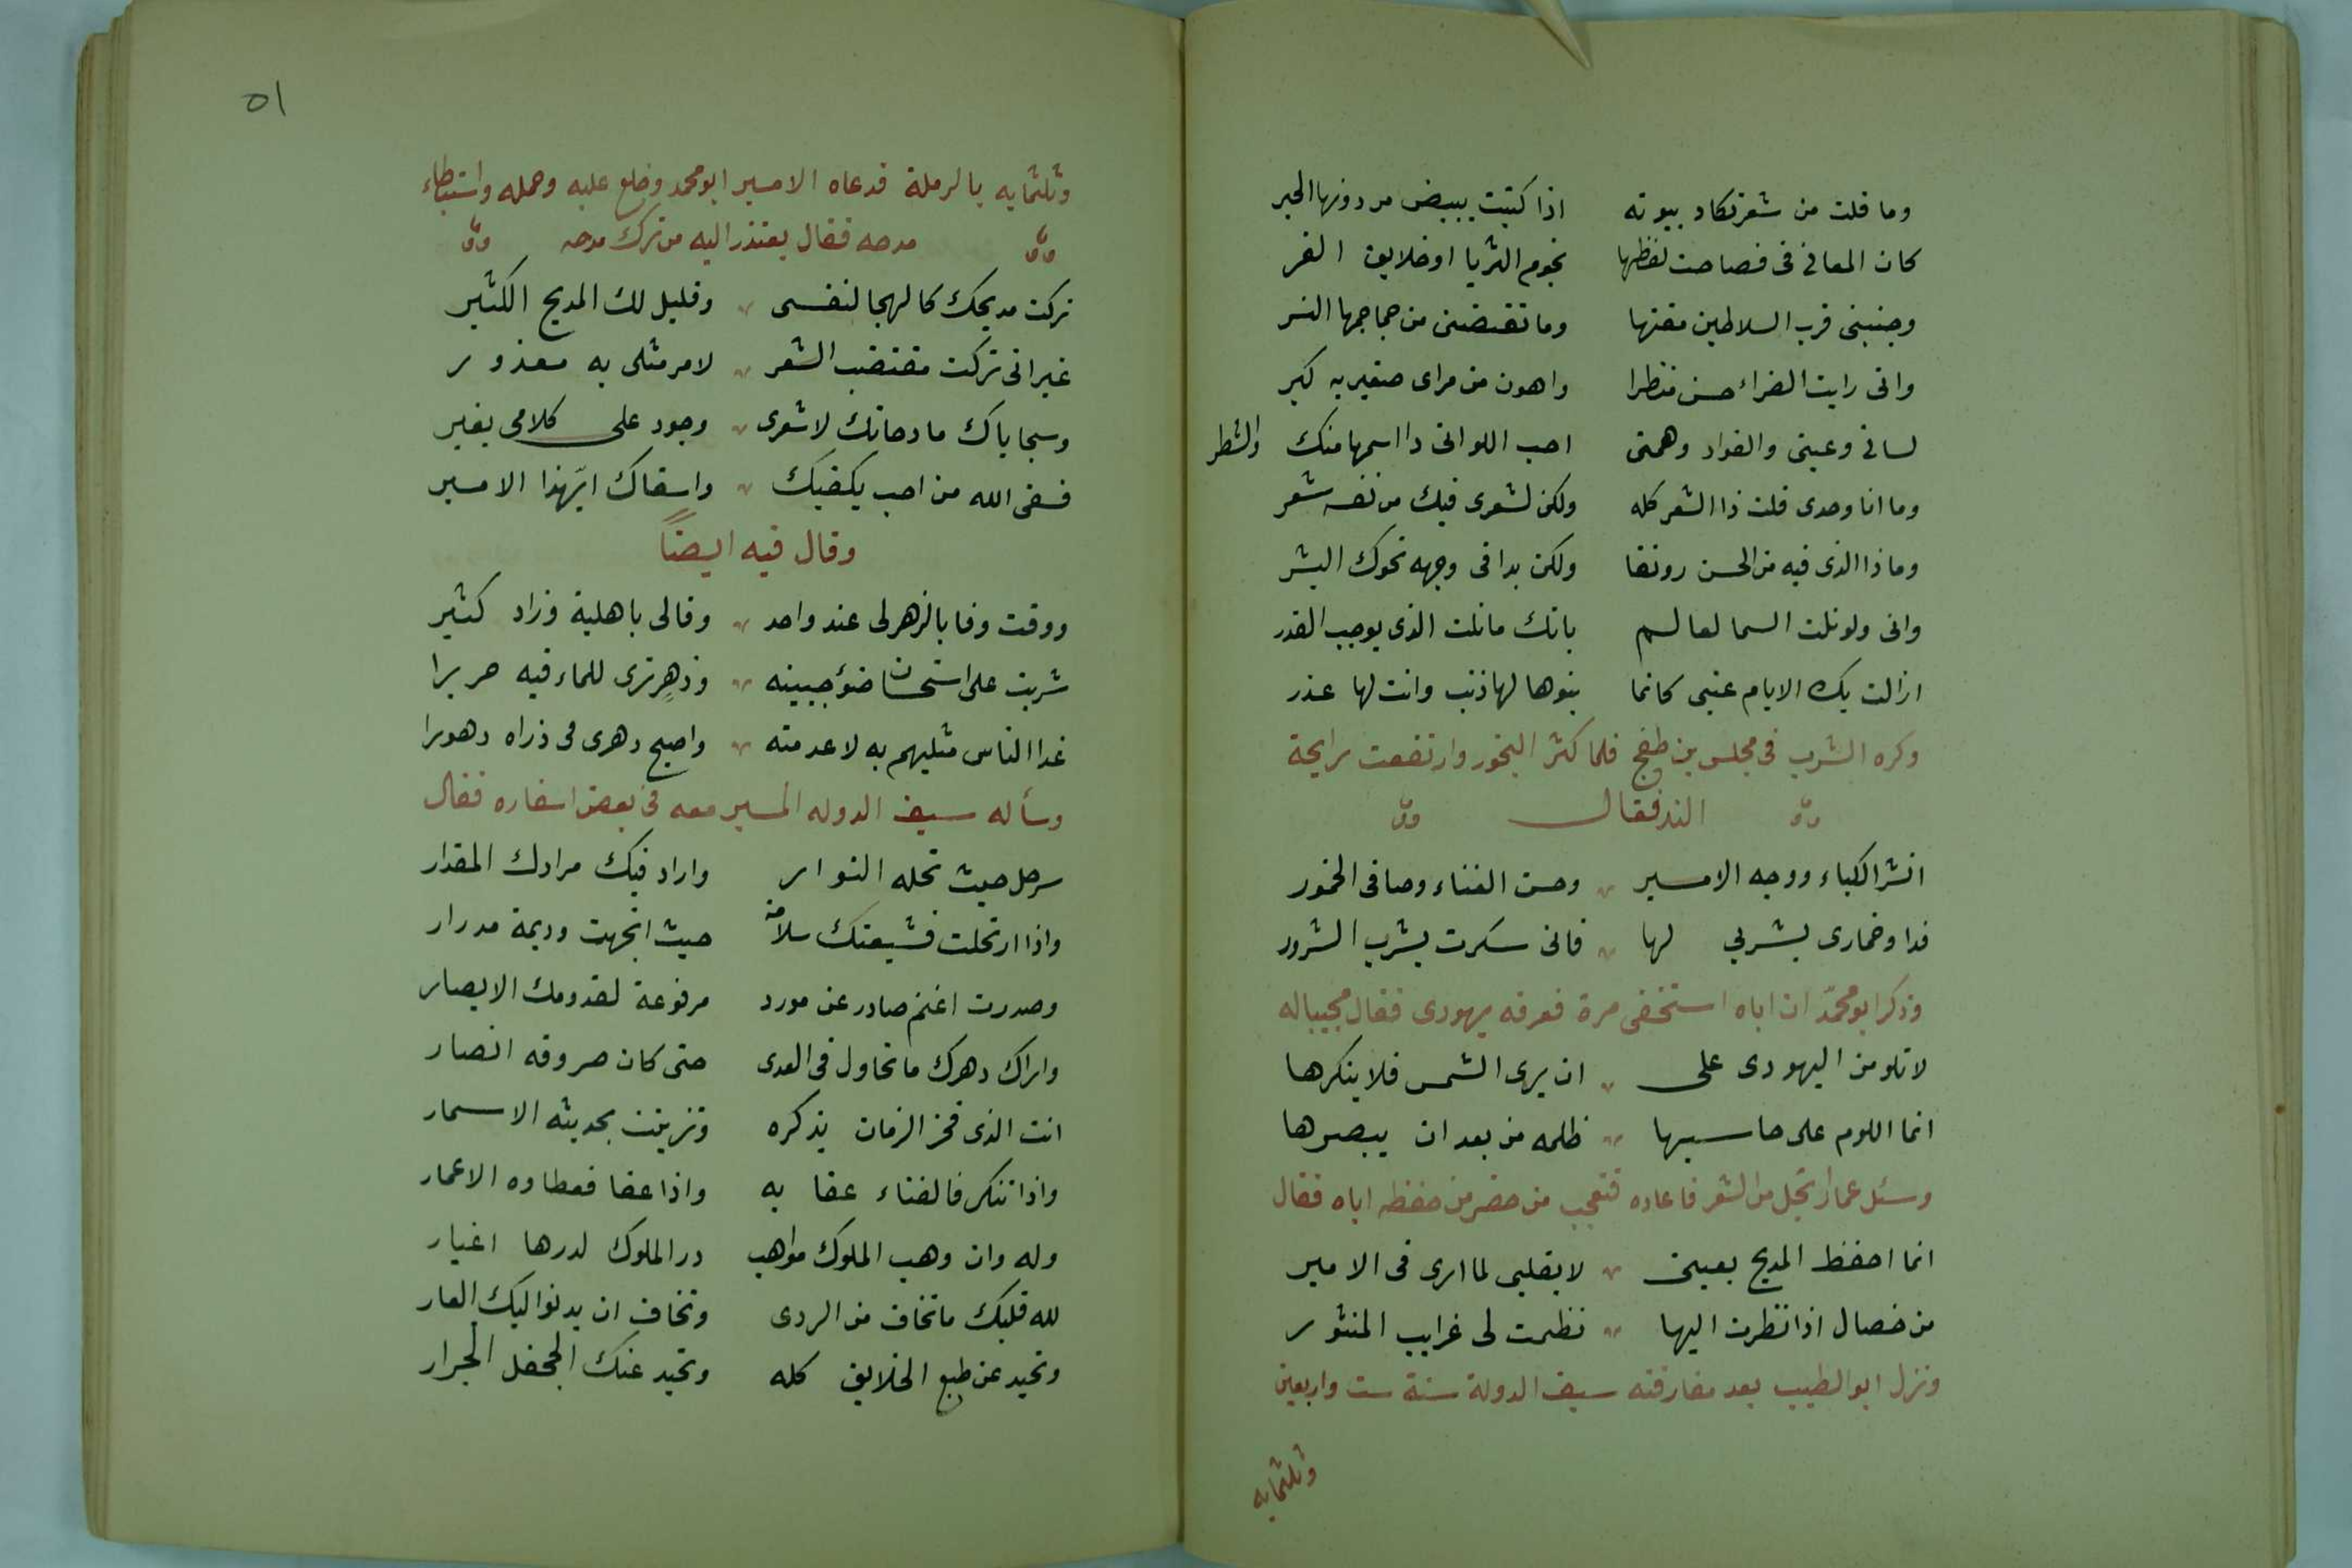 وما قلت من شعر تكاد بيوته اذا كتبت يبيض من دونها الحبر
كان المعاني في فصاحت لفظها نجوم الثريا او خلايق الغر
وجنبني قرب السلاطين مقتها وما تقتضيني من جماجمها النسر
واني رايت الضراء حسن منظرا واهون من مراى صغير به كبر
لساني وعيني والفواد وهمتي احب اللواتي دا اسمها منك والشطر
وما انا وحدى قلت ذا الشعر كله ولكن لشعرى فيك من نفسه شعر
وماذا الذى فيه من الحسن رونقا ولكن بدا في وجهه نحوك البشر
واني ولو نلت السما لعالم بانك مانلت الذى يوجب القدر
ازالت بك الايام عتبى كانما بنوها لها ذنب وانت لها عذر
وكره الشرب في مجلس بن طغج فلما كثر البخور وارتفعت رايحة
الند فقال
انشر الكباء ووجه الامير وحسن الغناء وصافى الخمور
فداو خمارى بشربي لها فانى سكرت بشرب السرور
وذكر ابو محمّد ان اباه استخفى مرة فعرفه يهودى فقال مجيبا له
لا تلومن اليهودى على ان يرى الشمس فلا ينكرها
انما اللوم على حاسبها ظلمه من بعد ان يبصرها
وسئل عما ارتجل من الشعر فاعاده فتعجب من حضر من حفظه اياه فقال
انما احفظ المديح بعينى لا بقلبى لما ارى فى الامير
من خصال اذا نظرت اليها نظمت لى غرايب المنثور
ونزل ابو الطيب بعد مفارقته سيف الدولة سنة ست واربعين
وثلثمايه
٥١
وثلثمايه بالرملة فدعاه الامير ابو محمد وخلع عليه وحمله واستبطاء
مدحه فقال يعتذر اليه من ترك مدحه
تركت مديحك كالهجا لنفسى وقليل لك المديح الكثير
غير انى تركت مقتضب الشعر لامر مثلى به معذور
وسجاياك مادحاتك لا شعرى وجود على كلامى يغير
فسقى الله من احب بكفيك واسقاك ايّهذا الامير
وقال فيه ايضاً
ووقت وفا بالزهر لى عند واحد وفالى باهلية وزاد كثير
شربت على استحسان ضوٴ جبينه وزهرٍ ترى للماء فيه حريرا
غدا الناس مثليهم به لا عدمته واصبح دهرى فى ذراه دهورا
وسأله سيف الدوله المسير معه فى بعض اسفاره فقال
سر حل حيث تحله النوار واراد فيك مرادك المقدار
واذا ارتحلت فشيعتك سلامة حيث اتجهت وديمة مدرار
وصدرت اغنم صادر عن مورد مرفوعة لقدومك الابصار
واراك دهرك ما تحاول فى العدى حتى كان صروفه انصار
انت الذى فخر الزمان بذكره وتزينت بحديثه الاسمار
واذا تنكر فالفناء عقا به واذا عفا فعطاوه الاعمار
وله وان وهب الملوك مواهب در الملوك لدرها اغبار
لله قلبك ما تخاف من الردى وتخاف ان يدنوا ليك العار
وتحيد عن طبع الخلايق كله وتحيد عنك الجحفل الجرار